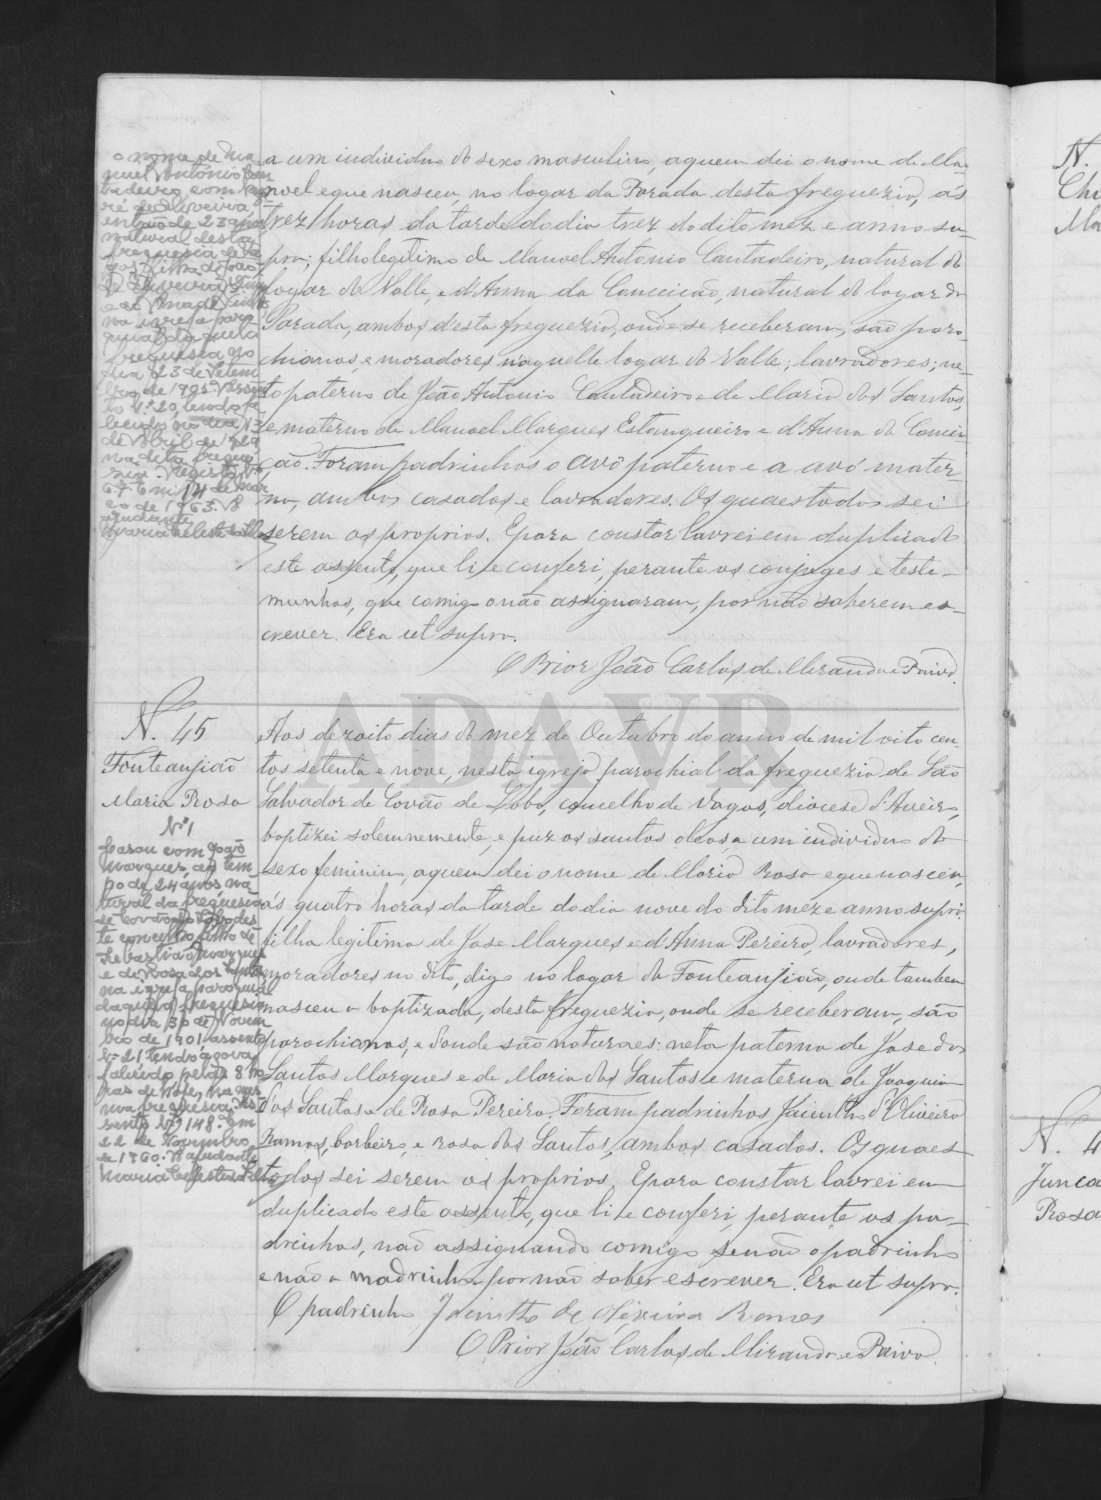 o nome de Ma
nuel Antonio Can
tadeiro com
ré de Oliveira
então de 23 anos
natural desta
freguesia de
filha de João
d'Oliveira
e de
na igreja paro
quial daquela
freguesia no
dia 23 de Setem
bro de 1905.
to Nº 20, tendo fa
lecido no dia 13
de Abril de
na dita fregue
sia. Registo Nº
676 in 14 de Mar
ço de 1963. A
ajudante
Maria Celeste
a um individuo do sexo masculino, aquem dei o nome de Ma-
noel e que nasceu, no logar da Parada desta freguezia, ás
trez horas da tarde do dia trez do dito mez e anno su-
pra; filho legitimo de Manoel Antonio Cantadeiro, natural do
logar do Valle, e d'Anna da Conceição, natural do logar da
Parada, ambos d'esta freguezia, onde se receberam, são paro-
chianos, e moradores n'aquelle logar do Valle; lavradores; ne-
to paterno de João Antonio Cantadeiro e de Maria dos Santos,
e materno de Manoel Marques Estanqueiro e d'Anna da Concei-
ção. Foram padrinhos o avô paterno e a avó mater-
na, ambos casados e lavradores. Os quaes todos sei
serem os proprios. E para constar lavrei em duplicado
este assento, que li e conferi, perante os conjuges e teste-
munhas, que comigo não assignaram, por não saberem es-
crever. Era ut supra.
O Prior João Carlos de Miranda e Paiva.
ADAVR
N. 45
Fonteanjião
Maria Rosa
Nº 1
Casou com João
Marques, ao tem
po de 24 anos na
tural da freguesia
de Covão do Lobo des
te concelho filho de
Sebastião Marques
e de Rosa dos Santos
na igreja paroquial
daquela freguesia
no dia 30 de Novem
bro de 1901, assento
Nº 21 tendo agora
falecido pelas 8 ho
ras de hoje, na mes
ma freguesia. As
sento Nº 148. Em
22 de Novembro
de 1960. A ajudante
Maria Celeste
Aos dezoito dias do mez de Outubro do anno de mil oito cen-
tos setenta e nove, nesta igreja parochial da freguezia de São
Salvador de Covão do Lobo, concelho de Vagos, diocese d'Aveiro,
baptizei solemnemente, e puz os santos oleos a um individuo do
sexo feminino, a quem dei o nome de Maria Rosa e que nasceu,
ás quatro horas da tarde do dia nove do dito mez e anno supra;
filha legitima de José Marques e d'Anna Pereira, lavradores,
moradores no dito, digo no logar da Fonteanjião, onde tambem
nasceu a baptizada, desta freguezia, onde se receberam, são
parochianos, e donde são naturaes: neta paterna de José dos
Santos Marques e de Maria dos Santos e materna de Joaquim
dos Santos e de Rosa Pereira. Foram padrinhos Jacintho d'Oliveira
Ramos, barbeiro, e Rosa dos Santos, ambos casados. Os quaes
todos sei serem os proprios. E para constar lavrei em
duplicado este assento, que li e conferi, perante os pa-
drinhos, não assignando comigo senão o padrinho
e não a madrinha por não saber escrever. Era ut supra.
O padrinho Jacintho de Oliveira Ramos
O Prior João Carlos de Miranda e Paiva.
N.
Cho
Ma
N. 4
Junca
Rosa